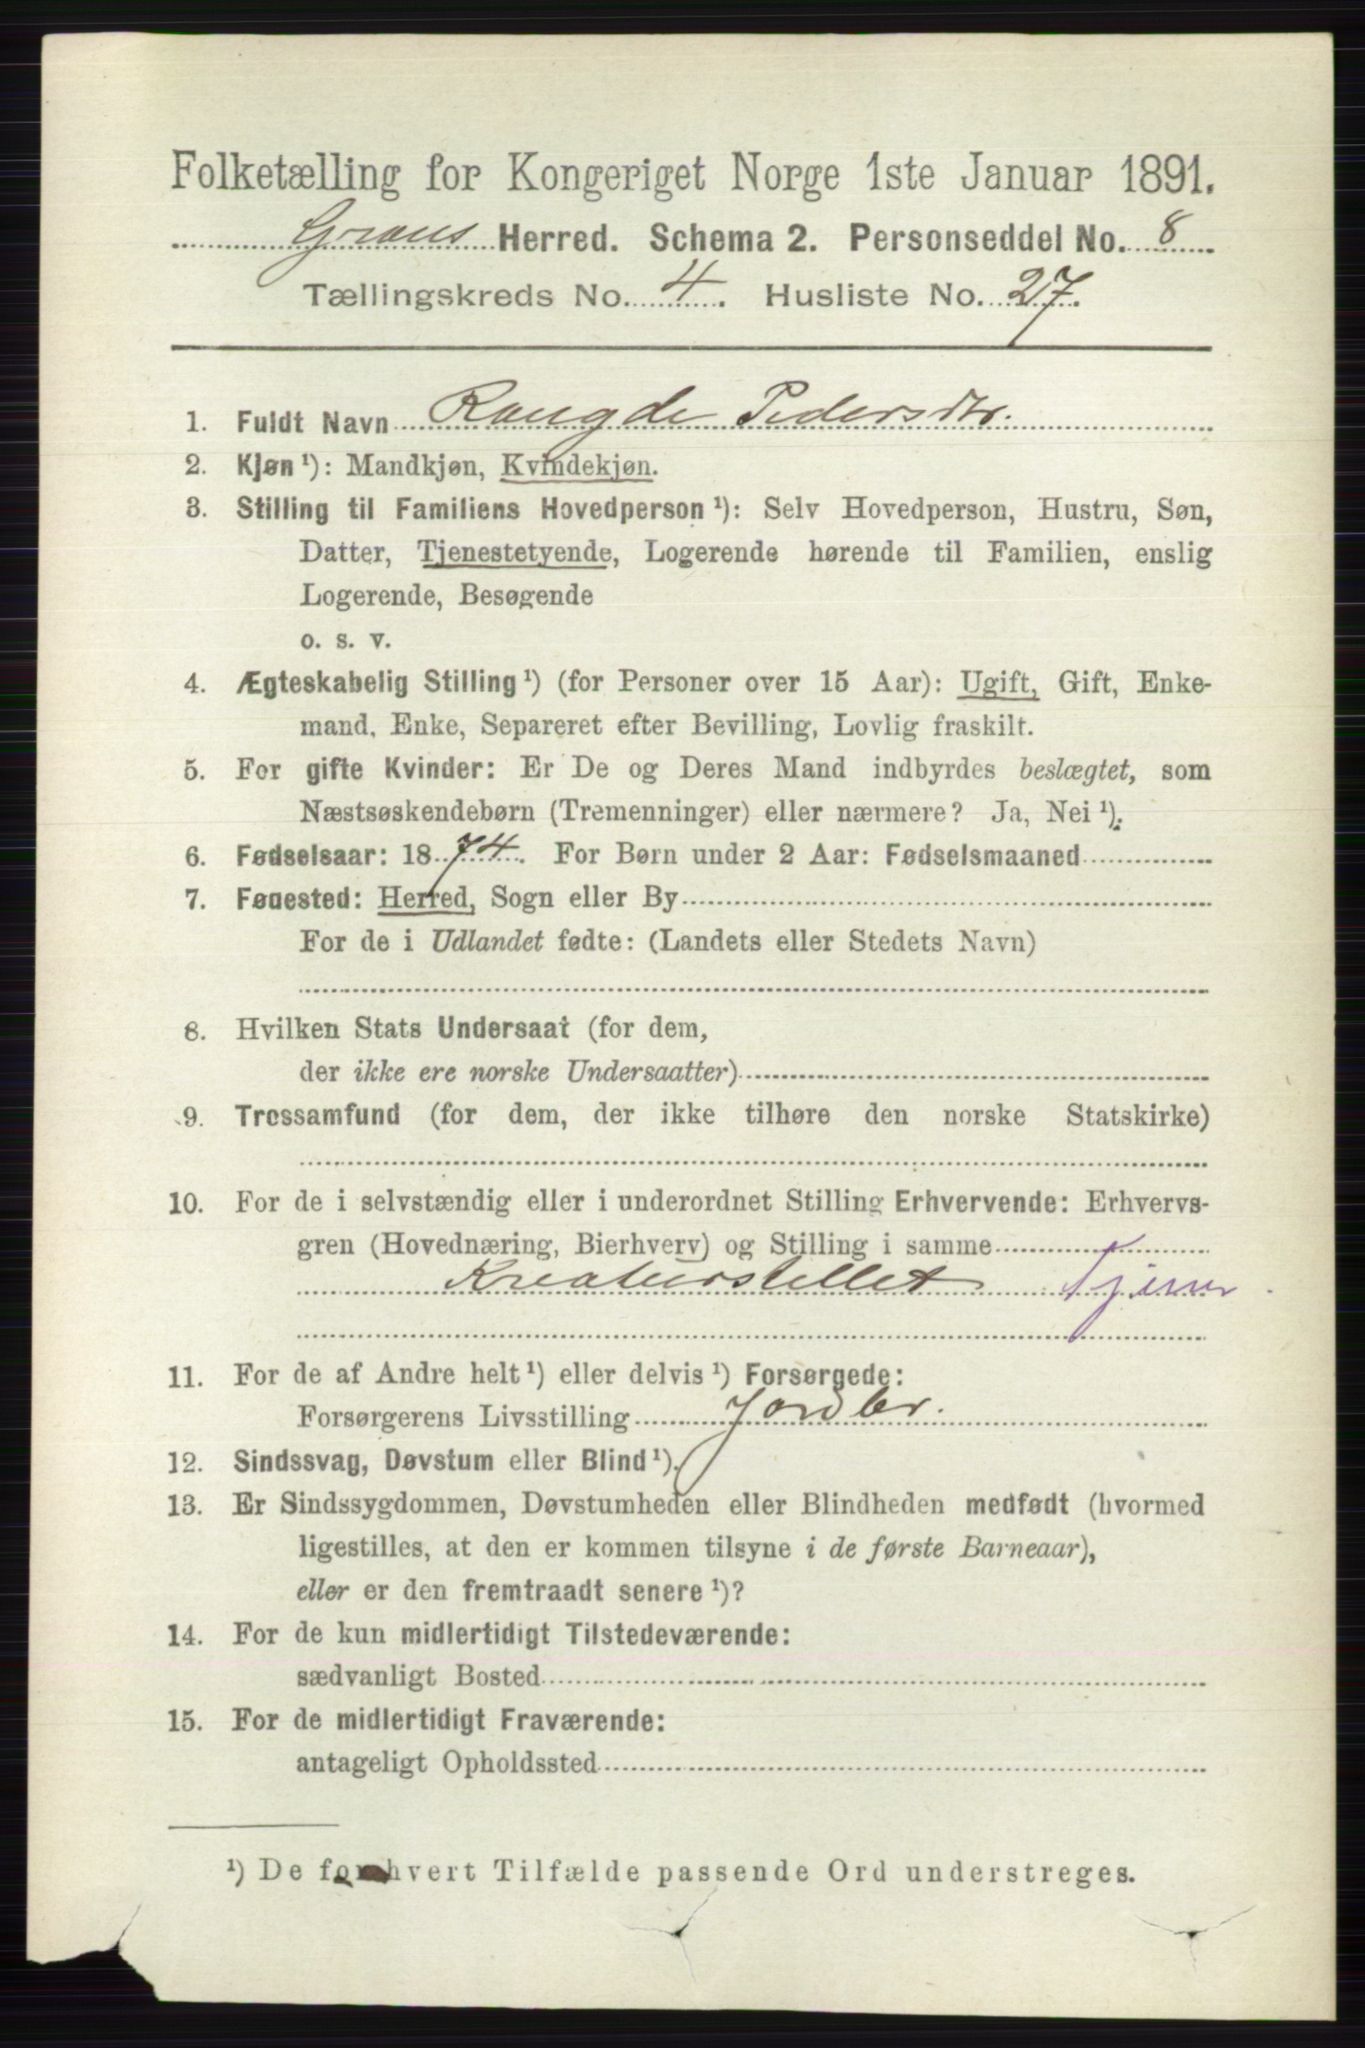 Folketælling for Kongeriget Norge 1ste Januar 1891.
Grans Herred. Schema 2. Personseddel No. 8
Tællingskreds No. 4. Husliste No. 27.
1. Fuldt Navn Rangde Pedersdtr.
2. Kjøn ¹): Mandkjøn, Kvindekjøn.
3. Stilling til Familiens Hovedperson ¹): Selv Hovedperson, Hustru, Søn,
Datter, Tjenestetyende, Logerende hørende til Familien, enslig
Logerende, Besøgende
o. s. v.
4. Ægteskabelig Stilling ¹) (for Personer over 15 Aar): Ugift, Gift, Enke-
mand, Enke, Separeret efter Bevilling, Lovlig fraskilt.
5. For gifte Kvinder: Er De og Deres Mand indbyrdes beslægtet, som
Næstsøskendebørn (Tremenninger) eller nærmere? Ja, Nei ¹).
6. Fødselsaar: 1874. For Børn under 2 Aar: Fødselsmaaned
7. Fødested: Herred, Sogn eller By
For de i Udlandet fødte: (Landets eller Stedets Navn)
8. Hvilken Stats Undersaat (for dem,
der ikke ere norske Undersaatter)
9. Trossamfund (for dem, der ikke tilhøre den norske Statskirke)
10. For de i selvstændig eller i underordnet Stilling Erhvervende: Erhvervs-
gren (Hovednæring, Bierhverv) og Stilling i samme
Kreaturstellet Tjener
11. For de af Andre helt ¹) eller delvis ¹) Forsørgede:
Forsørgerens Livsstilling Jordbr.
12. Sindssvag, Døvstum eller Blind ¹).
13. Er Sindssygdommen, Døvstumheden eller Blindheden medfødt (hvormed
ligestilles, at den er kommen tilsyne i de første Barneaar),
eller er den fremtraadt senere ¹)?
14. For de kun midlertidigt Tilstedeværende:
sædvanligt Bosted
15. For de midlertidigt Fraværende:
antageligt Opholdssted
¹) De for hvert Tilfælde passende Ord understreges.